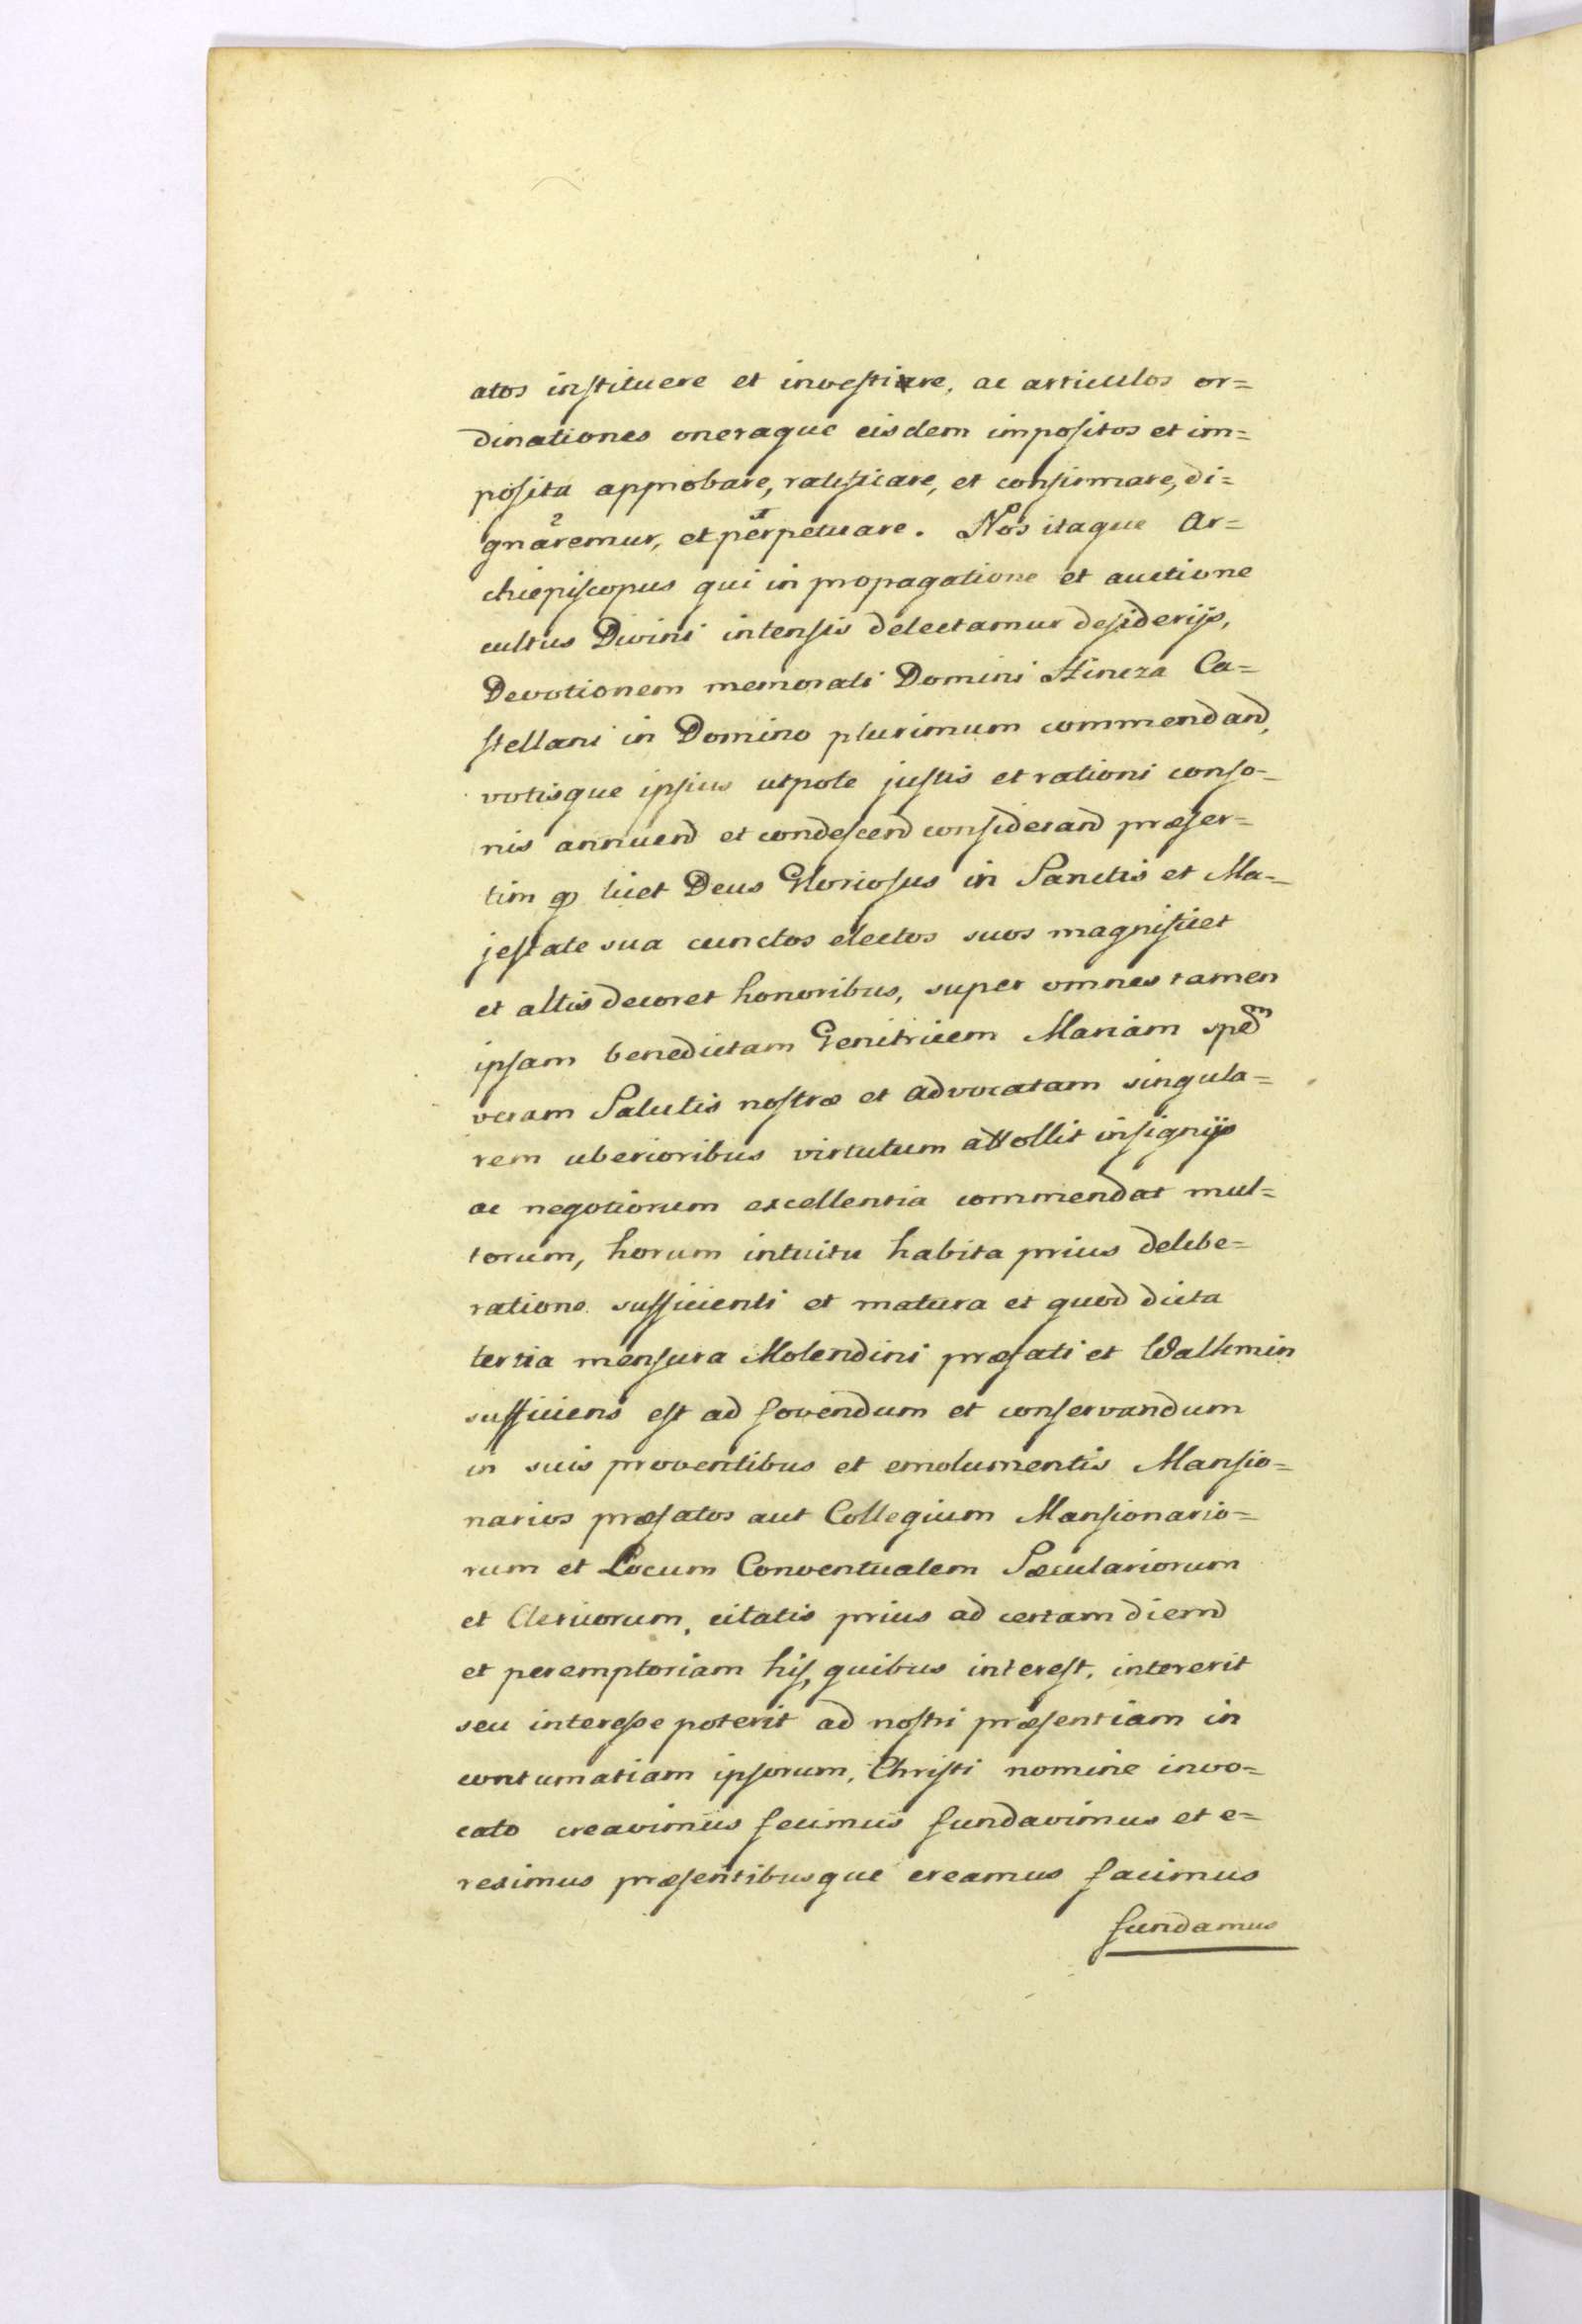 atos instituere et investire, ac articulos or=
dinationes oneraque eisdem impositos et im=
posita approbare, ratificare, et confirmare, di=
gnaremur, et perpetuare. Nos itaque Ar=
chiepiscopus qui in propagatione et auctione
cultus Divini intensis delectamur desiderijs,
Devotionem memorati Domini Hincza Ca=
stellani in Domino plurimum commendand,
votisque ipsius utpote justis et rationi conso=
nis annuend et condescend considerand præser=
tim licet Deus Gloriosus in Sanctis et Ma=
jestate sua cunctos electos suos magnificet
et altis decoret honoribus, super omnes tamen
ipsam benedictam Genitricem Mariam spem
veram Salutis nostræ et advocatam singula=
rem uberioribus virtutum attollit insignijs
ac negotiorum excellentia commendat mul=
torum, horum intuitu habita prius delibe=
ratione sufficienti et matura et quod dicta
tertia mensura Molendini præfati et Walkmin
sufficiens est ad fovendum et conservandum
in suis proventibus et emolumentis Mansio=
narios præfatos aut Collegium Mansionario=
rum et Locum Conventualem Sæculariorum
et Clericorum, citatis prius ad certam diem
et peremptoriam his, quibus interest, intererit
seu interesse poterit ad nostri præsentiam in
contumatiam ipsorum, Christi nomine invo=
cato creavimus fecimus fundavimus et e=
reximus præsentibusque creamus facimus
fundamus